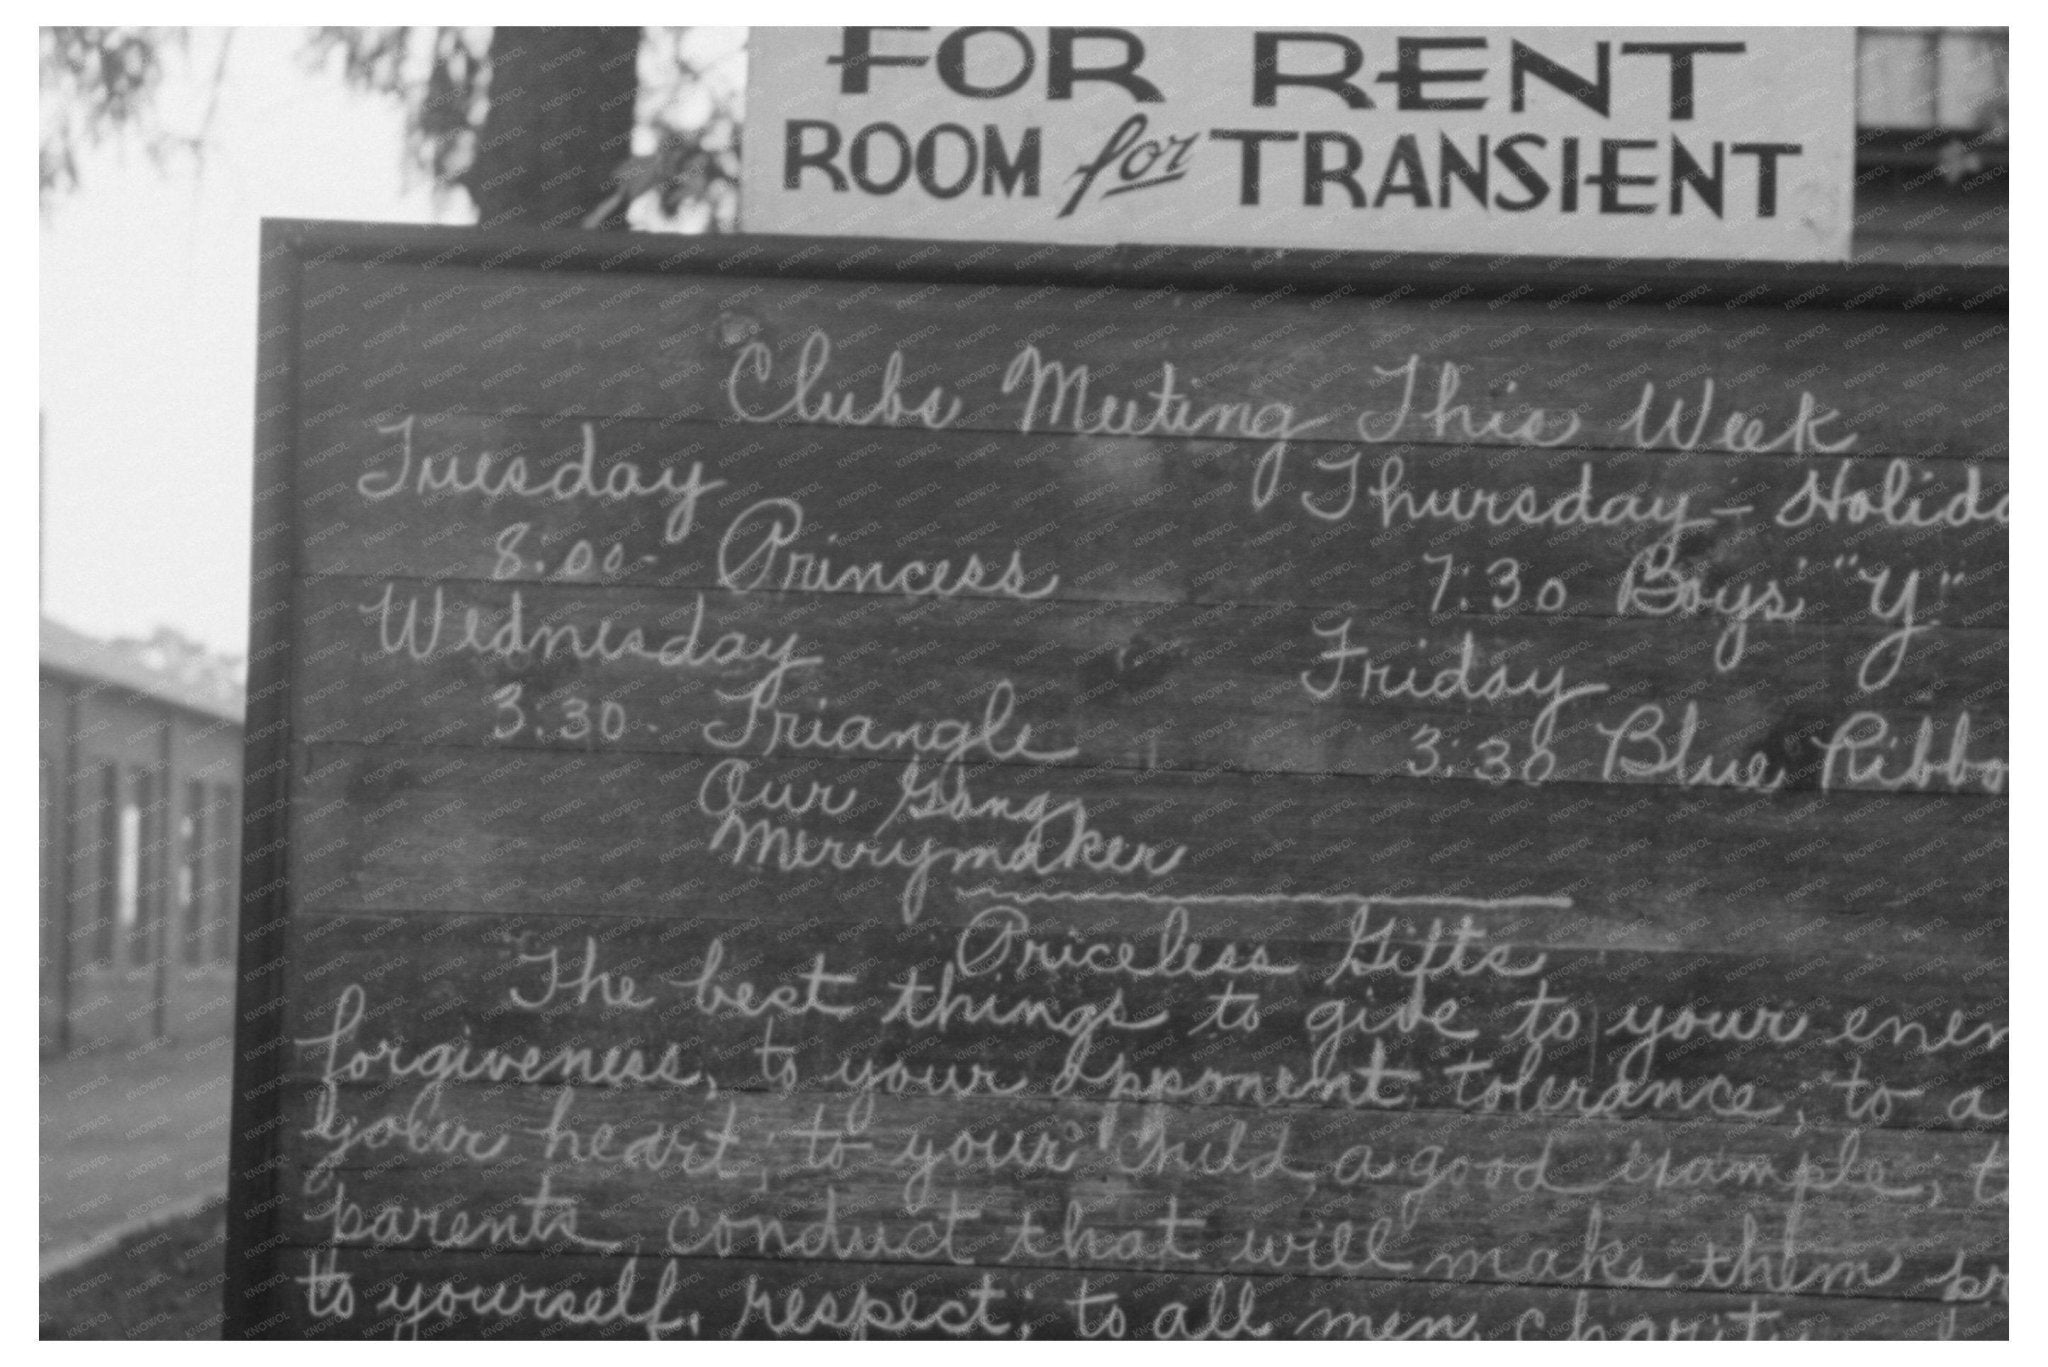 FOR RENT
ROOM for TRANSIENT
Clubs Meeting This Week
Tuesday
8:00- Princess
Wednesday
3:30- Triangle
Our Gang
Merrymaker
Thursday - Holida
7:30 Boys' "Y"
Friday
3:30 Blue Ribbo
Priceless Gifts
The best things to give to your enem
forgiveness, to your opponent, tolerance; to a
your heart; to your child, a good example; t
parents, conduct that will make them pr
to yourself, respect; to all men, charity